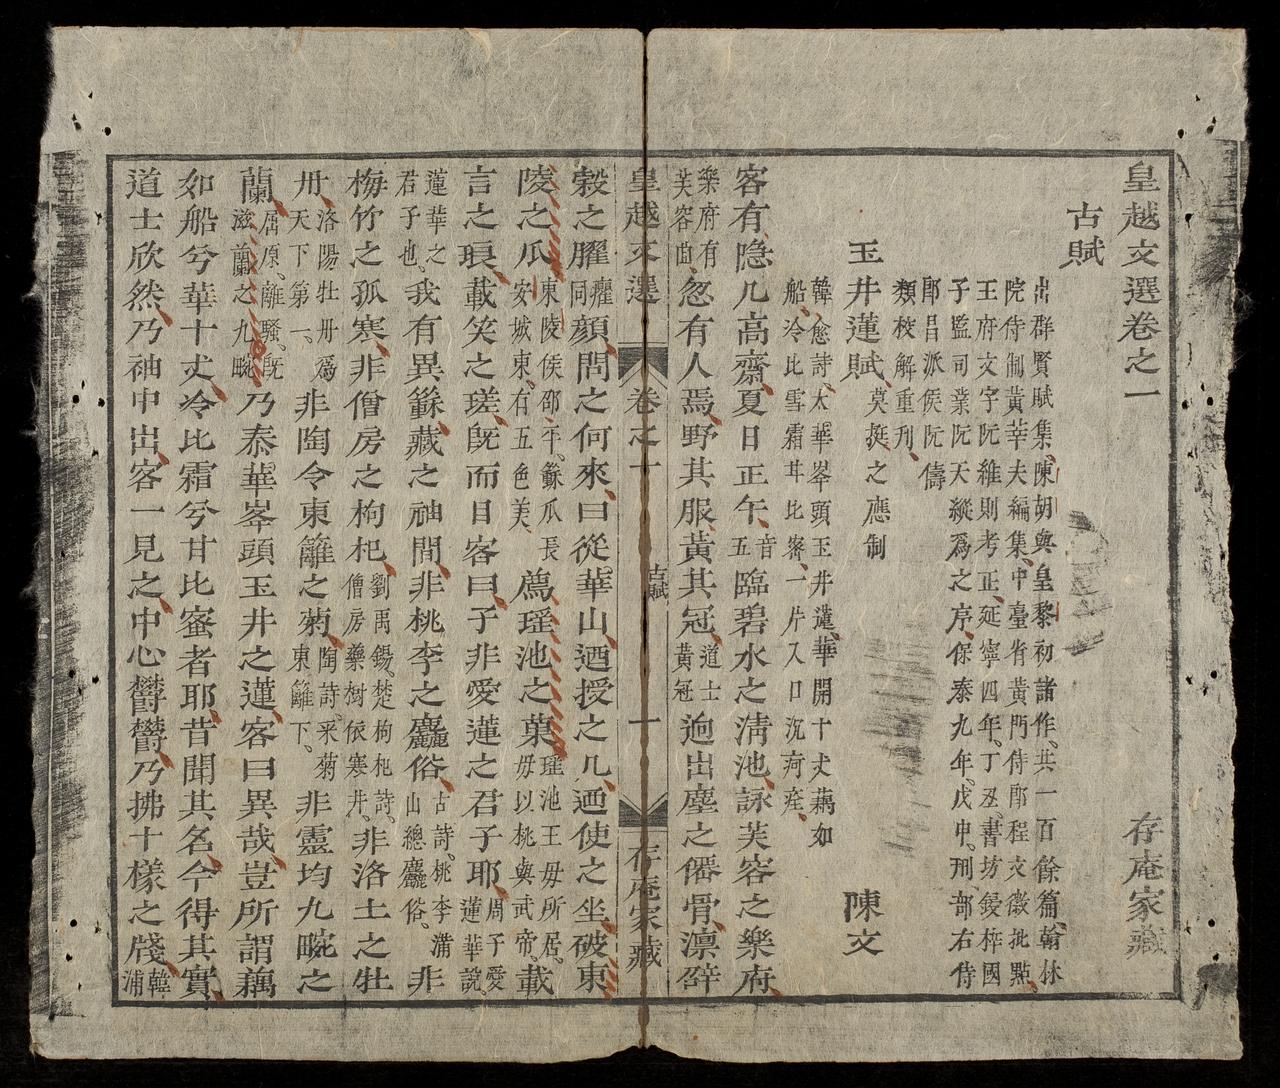 皇越文選卷之一　存庵家藏
古賦
出群賢賦集、陳胡與皇黎初諸作、共一百餘篇、翰林
院侍制黃莘夫編集、中臺省黃門侍郎程文徽批點、
王府文字阮維則考正、延寧四年、丁丑、書坊鋟梓國
子監司業阮天縱爲之序、保泰九年、戊申、刑部右侍
郎昌派侯阮儔
類校解重刋、
玉井蓮賦、莫挺之應制　陳文
韓愈詩、太華峯頭玉井蓮、華開十丈藕如
船、冷比雪霜甘比蜜、一片入口沉疴痊、
客有、隐几高齋、夏日正午、音五臨碧水之清池、詠芙容之樂府、
樂府有芙容曲、忽有人焉、野其服、黃其冠、道士黃冠迥出塵之僊骨、凛辟
皇越文選　卷之一　古賦　一　存庵家藏
穀之臞癯同顔、問之何來、曰從華山、迺授之几、迺使之坐、破東
陵之瓜、東陵侯邵平、種瓜長安城東、有五色美、薦瑶池之菓、瑶池王母所居、母以桃與武帝、載
言之琅、載笑之瑳、旣而目客曰、子非愛蓮之君子耶、周子愛蓮華說、
蓮華之君子也、我有異種、藏之袖間、非桃李之麤俗、古詩、桃李滿山總麤俗、非
梅竹之孤寒、非僧房之枸杞、劉禹錫、楚枸杞詩、僧房藥樹依寒井、非洛土之牡
丹、洛陽牡丹爲天下第一、非陶令東籬之菊、陶詩、采菊東籬下、非靈均九畹之
蘭、屈原、離騷、旣滋蘭之九畹、乃泰華峯頭玉井之蓮、客曰異哉、豈所謂藕
如船兮華十丈、冷比霜兮甘比蜜者耶、昔聞其名、今得其實、
道士欣然、乃袖中出、客一見之、中心欝欝、乃拂十樣之牋、韓浦